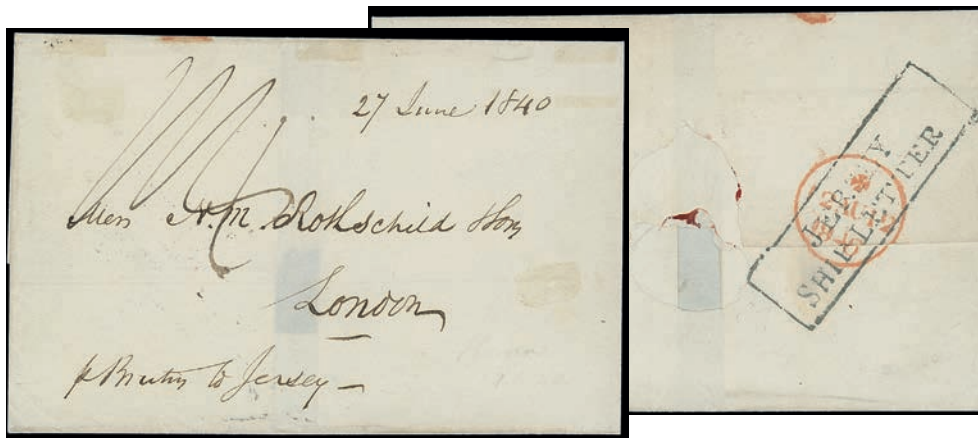 27 June 1840
Mess N. M. Rothschild & Sons
London
p Brutus to Jersey
JERSEY
SHIP LETTER